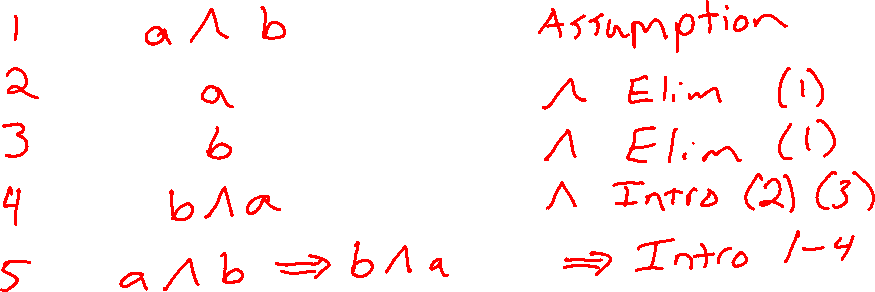 1 a ∧ b Assumption
2 a ∧ Elim (1)
3 b ∧ Elim (1)
4 b ∧ a ∧ Intro (2) (3)
5 a ∧ b ⇒ b ∧ a ⇒ Intro 1-4